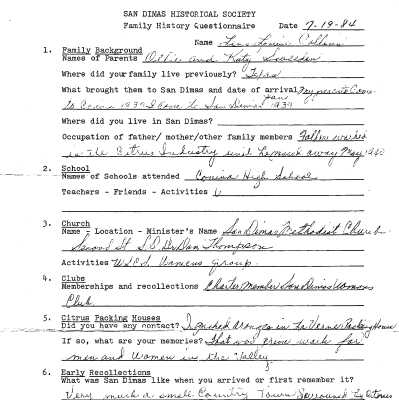 SAN DIMAS HISTORICAL SOCIETY
Family History Questionnaire Date 7-19-84
Name
1. Family Background
Names of Parents and Katy
Where did your family live previously?
What brought them to San Dimas and date of arrival? my parents Came
to Covina 1937 I came to San Dimas June 1939
Where did you live in San Dimas?
Occupation of father/ mother/other family members Father worked
in the Citrus Industry until he moved away May
2. School
Names of Schools attended Covina High School
Teachers - Friends - Activities
3. Church
Name - Location - Minister's Name San Dimas Methodist Church
Second St S.D. Dr Dan Thompson
Activities W.S.C.S. Womens Group.
4. Clubs
Memberships and recollections Charter Member San Dimas Womans
Club
5. Citrus Packing Houses
Did you have any contact? I packed oranges in La Verne Packing House
If so, what are your memories? That was prime work for
men and women in the Valley
6. Early Recollections
What was San Dimas like when you arrived or first remember it?
Very much a small Country Town Surround by Citrus